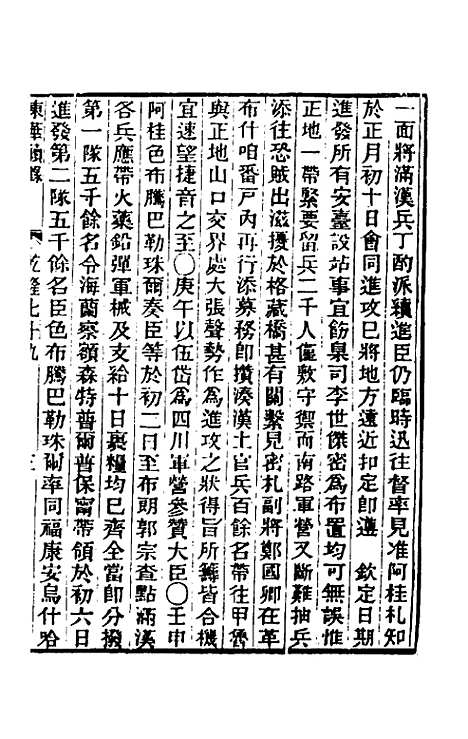 一面將滿漢兵丁酌派續進臣仍臨時迅往督率見准阿桂札知
於正月初十日會同進攻已將地方遠近扣定卽遵 欽定日期
進發所有安臺設站事宜飭臬司李世傑密爲布置均可無誤惟
正地一帶緊要留兵二千人僅敷守禦而南路軍營又斷難抽兵
添往恐賊出滋擾於格藏橋甚有關繫見密札副將鄭國卿在革
布什咱番戶內再行添募務卽攢湊漢土官兵百餘名帶往甲魯
與正地山口交界處大張聲勢作爲進攻之狀得旨所籌皆合機
宜速望捷音之至○庚午以伍岱爲四川軍營參贊大臣○壬申
阿桂色布騰巴勒珠爾奏臣等於初二日至布朗郭宗查點滿漢
各兵應帶火藥鉛彈軍械及支給十日裹糧均已齊全當卽分撥
第一隊五千餘名令海蘭察額森特普爾普保甯帶領於初六日
進發第二隊五千餘名臣色布騰巴勒珠爾率同福康安烏什哈
東華續錄 乾隆七十九